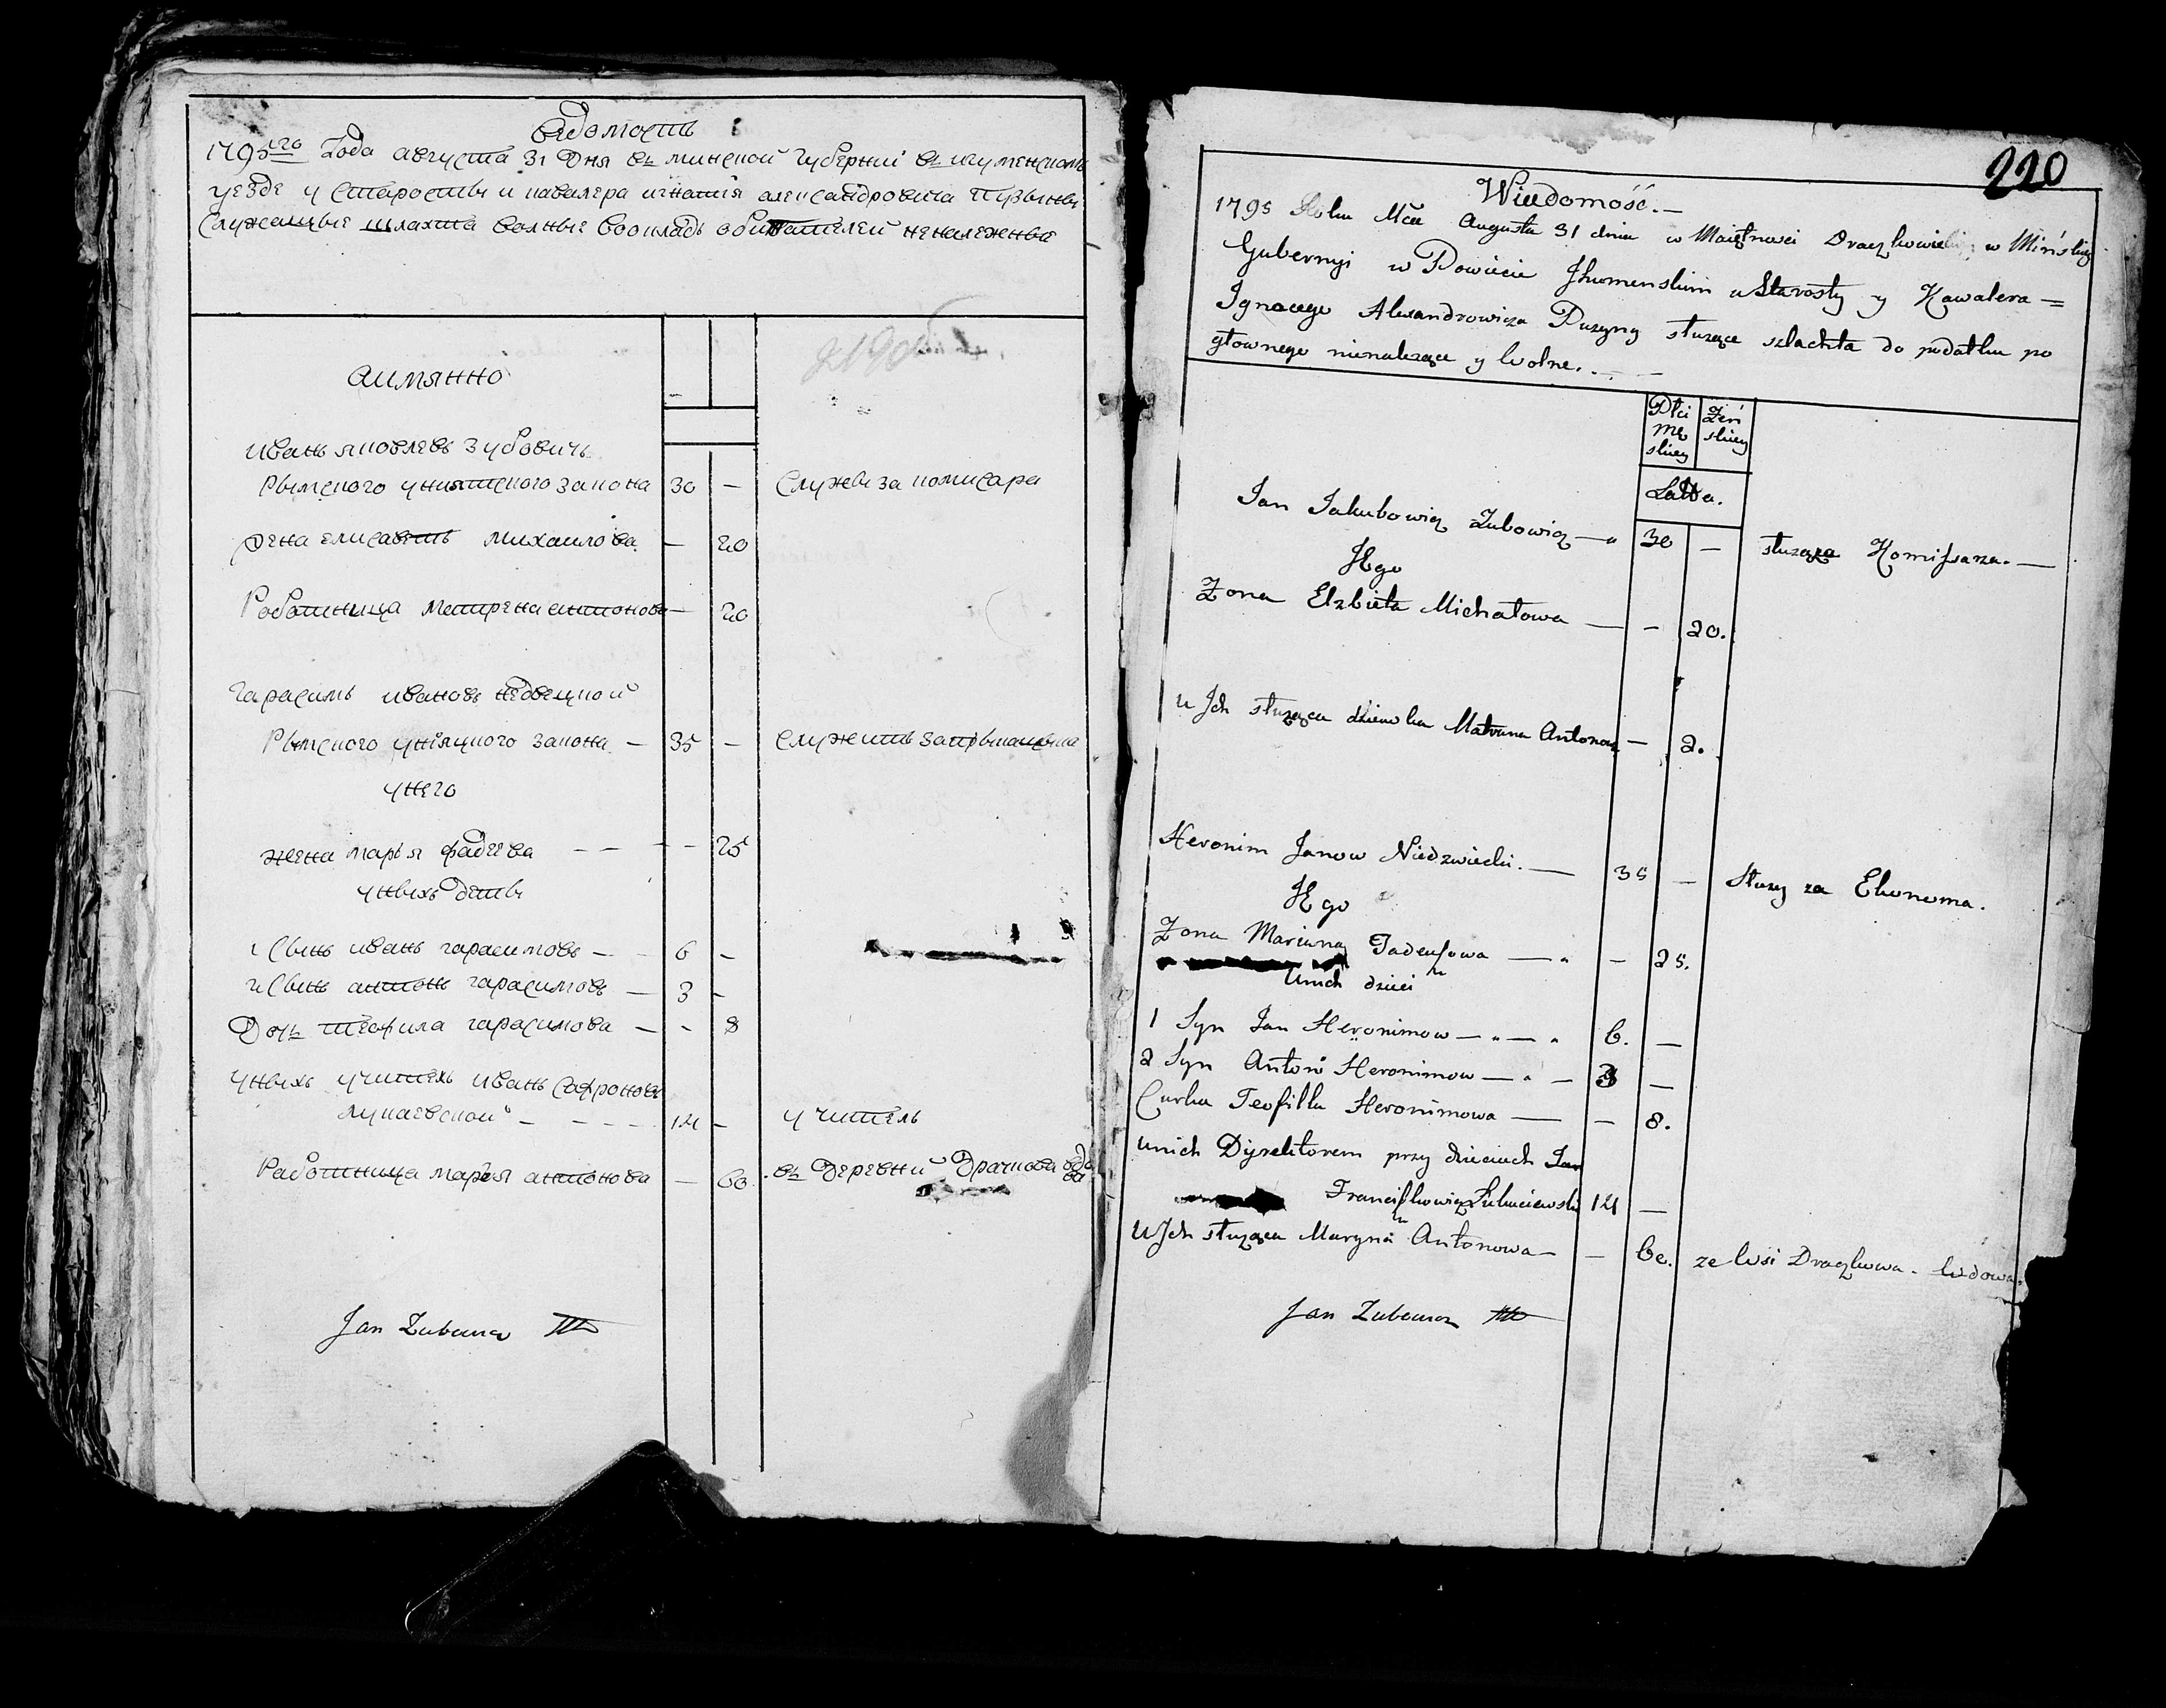 Вѣдомость
1795го Года августа 31 Дня въ минской губерніи въ игуменскомъ
уезде у Старосты и кавалера игнатія александровича пузыны
Служащые шлахта волные воокладъ обывателей неналежные
аимянно
иванъ яковлевъ зубовичъ
Рымского униятского закона 30 — Служы за комисара
жена елисаветь михаилова — 20
Работница матрена антонова — 20
гарасимъ ивановъ недвецкой
Рымского уніяцкого закона — 35 —
унего
жена марья фадеева — — — — 25
уныхъ деты
1 Сынъ иванъ гарасимовъ — 6 —
2 Сынъ антонъ гарасимовъ — 3 —
Дочь теофила гарасимова — — 8
уныхъ учитель иванъ Сафроновъ
лукаевской — — — — 14 — учитель
Работница марья антонова — 60. въ Деревни Драчкова вдова
Jan Zubowicz
220
Wiadomość.—
1795 Roku Mca Augusta 31 dnia w Maiętnosci Draczkowskiey w Minskiey
Gubernyi w Powiecie Jhumenskim u Starosty y Kawalera =
Ignacego Alexandrowicza Puzyny słuzące szlachta do podatku po
głownego nienalezące y Wolne. . — —
Płci męskiey Zeńskiey
Latta.
Jan Jakubowicz Zubowicz — 30 — słuząza Komissarza. —
Jego
Zona Elzbieta Michałowa — — 20.
u Jch słuząca dziewka Matruna Antonowa — 2.
Heronim Janow Niedzwiecki. — 35 — Słuzy za Ekonoma.
Jego
Zona Marianna Tadeuszowa — — 25.
Unich dzieci
1 Syn Jan Heronimow — — 6. —
2 Syn Antoni Heronimow — — 3 —
Curka Teofilla Heronimowa — — 8.
unich Dyrektorem przy dzieciach Jan
Franciszkowicz Łukaciewski 14 —
U Jch słuząca Maryna Antonowa — — 60. ze Wsi Draczkowa. Wdowa.
Jan Zubowicz